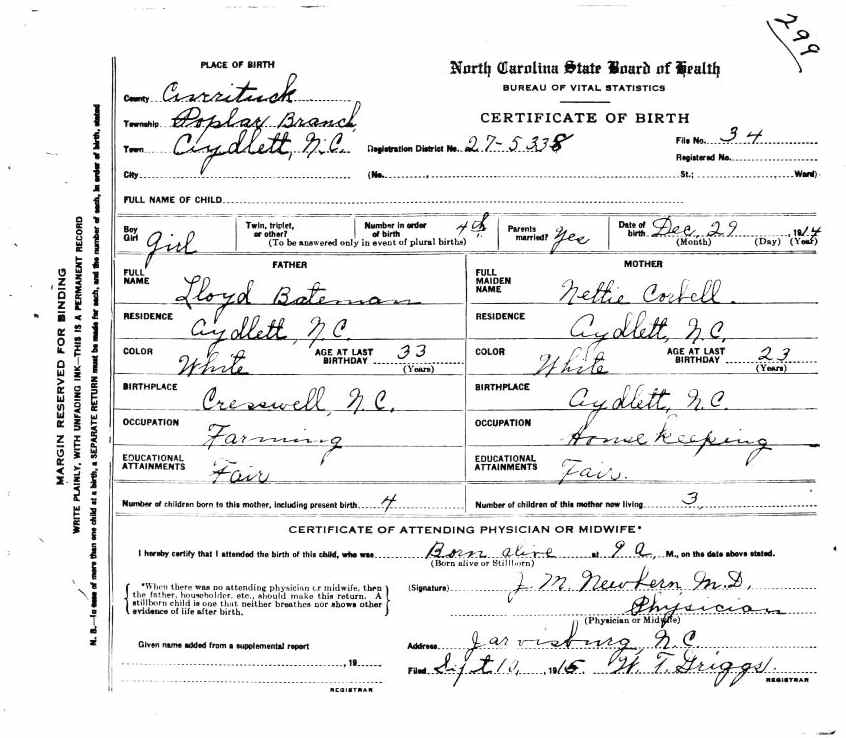 299
PLACE OF BIRTH
North Carolina State Board of Health
BUREAU OF VITAL STATISTICS
County Currituck
CERTIFICATE OF BIRTH
Township Poplar Branch
Town Aydlett, N.C. Registration District No. 27-5338 File No. 34
Registered No.
City (No. , St.; Ward)
FULL NAME OF CHILD
Boy Girl girl Twin, triplet, or other? Number in order of birth 4th Parents married? Yes Date of birth Dec 29, 1914
(To be answered only in event of plural births) (Month) (Day) (Year)
FATHER MOTHER
FULL NAME Lloyd Bateman FULL MAIDEN NAME Nettie Corbell.
RESIDENCE Aydlett, N.C. RESIDENCE Aydlett, N.C.
COLOR White AGE AT LAST BIRTHDAY 33 (Years) COLOR White AGE AT LAST BIRTHDAY 23 (Years)
BIRTHPLACE Cresswell, N.C. BIRTHPLACE Aydlett, N.C.
OCCUPATION Farming OCCUPATION House Keeping
EDUCATIONAL ATTAINMENTS Fair EDUCATIONAL ATTAINMENTS Fair.
Number of children born to this mother, including present birth 4 Number of children of this mother now living 3
CERTIFICATE OF ATTENDING PHYSICIAN OR MIDWIFE*
I hereby certify that I attended the birth of this child, who was Born alive at 9 a, M., on the date above stated.
(Born alive or Stillborn)
*When there was no attending physician or midwife, then
the father, householder, etc., should make this return. A
stillborn child is one that neither breathes nor shows other
evidence of life after birth.
(Signature) J. M. Newbern M.D.
Physician
(Physician or Midwife)
Given name added from a supplemental report
Address Jarvisburg, N C
, 19
Filed Sept 10, 1915 W. T. Griggs.
REGISTRAR REGISTRAR
MARGIN RESERVED FOR BINDING
WRITE PLAINLY, WITH UNFADING INK—THIS IS A PERMANENT RECORD
N. B.—In case of more than one child at a birth, a SEPARATE RETURN must be made for each, and the number of each, in order of birth, stated